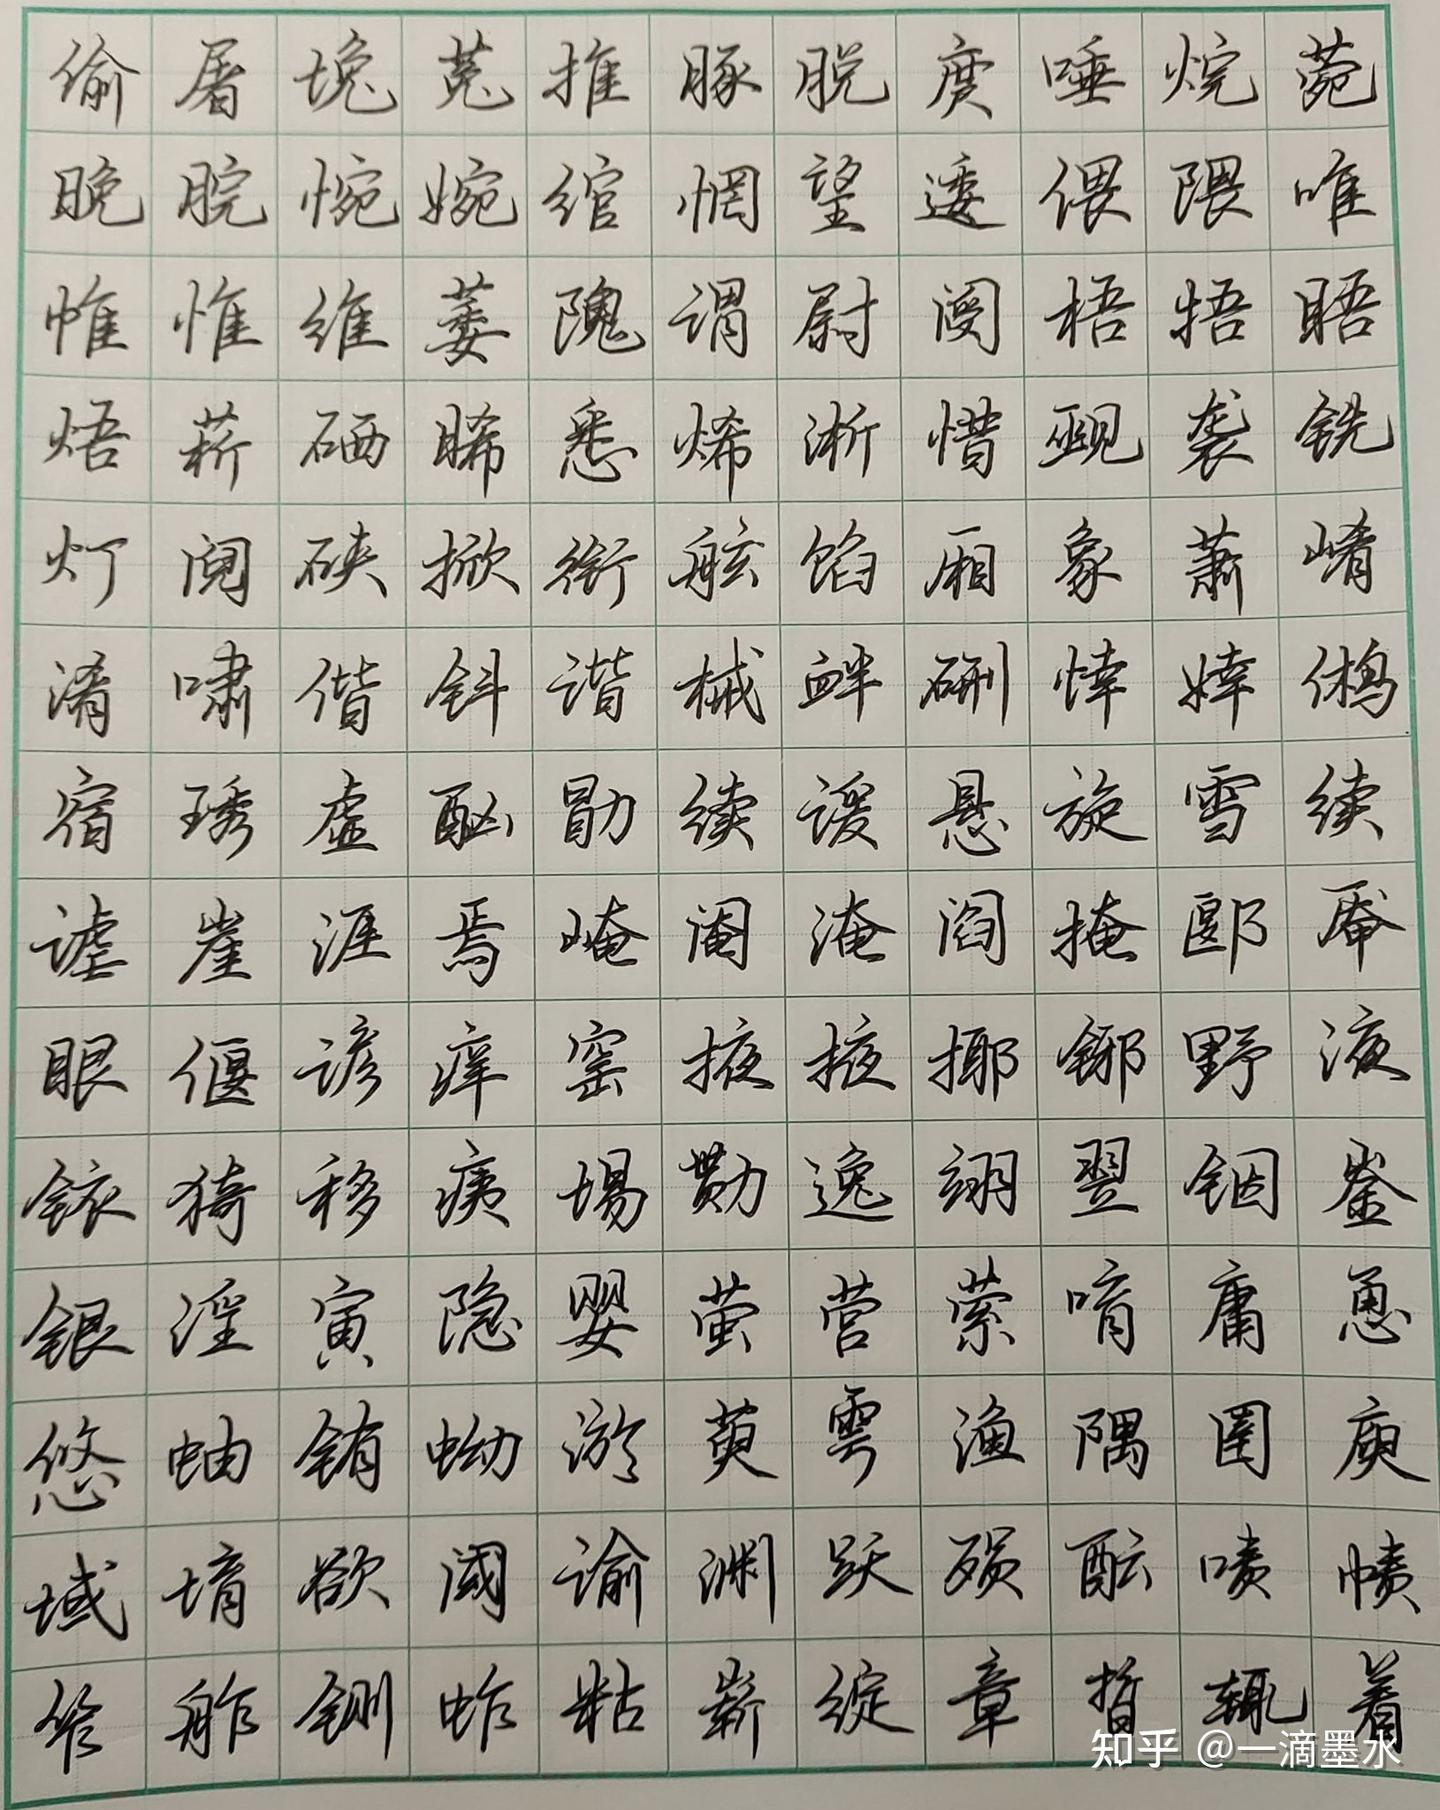 偷屠堍菟推豚脱庹唾烷菀
晚脘惋婉绾惘望逶偎隈唯
帷惟维萎隗谓尉阌梧牾晤
焐菥硒晞悉烯淅惜觋袭铣
阋硖掀衔舷馅厢象萧崤
淆啸偕斜谐械衅硎悻婞鸺
宿琇虚酗勖续谖悬旋雪续
谑崖涯焉崦阉淹阎掩郾厣
眼偃谚痒窑掖掖揶铘野液
铱猗移痍埸勚逸翊翌铟崟
银淫寅隐婴萤营萦唷庸恿
悠蚰铕蚴游萸雩渔隅圉庾
域堉欲阈谕渊跃殒酝啧帻
笮舴铡蚱粘崭绽章晢辄着
知乎 @一滴墨水